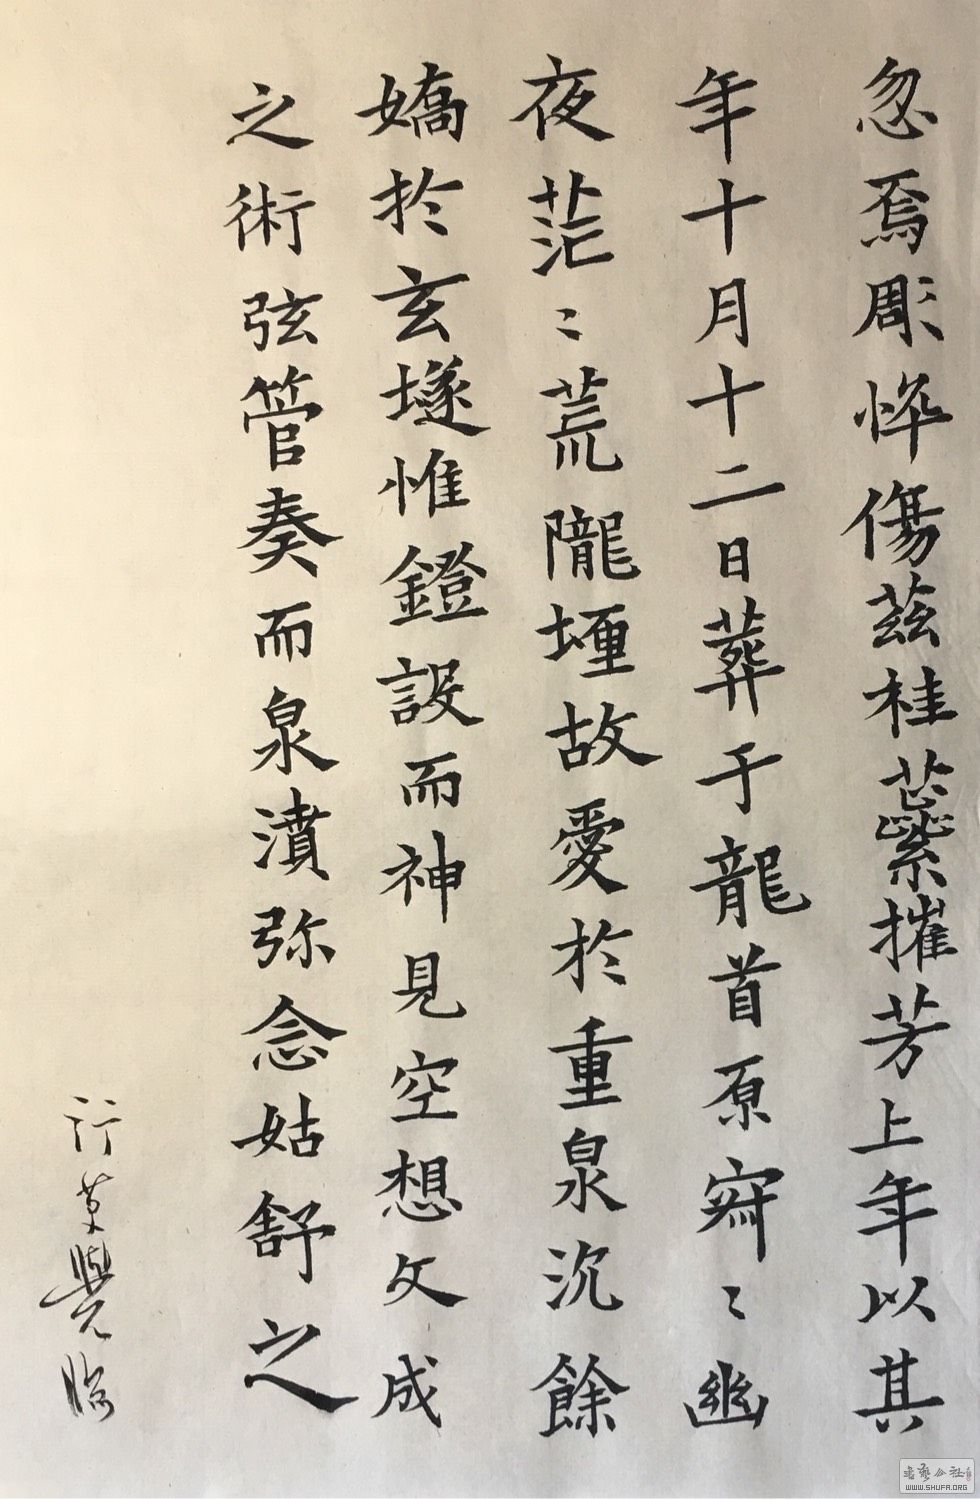 忽焉彫悴傷茲桂蘂摧芳上年以其
年十月十二日葬于龍首原窾〻幽
夜茫〻荒隴堙故愛於重泉沉餘
嬌於玄墜惟鐙設而神見空想文成
之術弦管奏而泉濆弥念姑舒之
臨
WWW.SHUFA.ORG